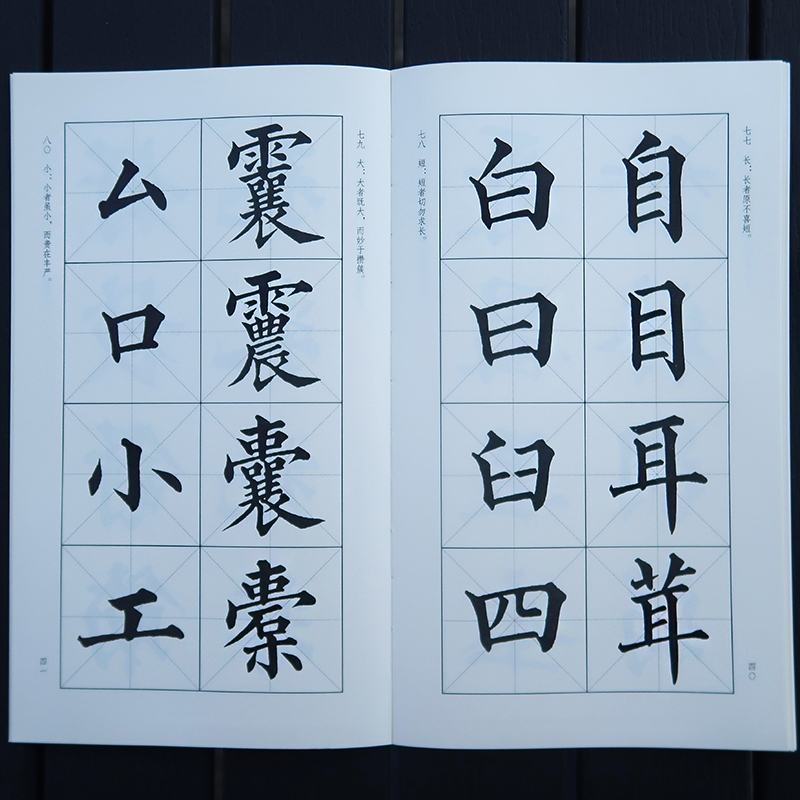 七七 长：长者原不喜短。
自
目
耳
茸
白
曰
臼
四
七八 短：短者切勿求长。
四〇
七九 大：大者既大，而妙于攒簇。
囊
厶
口
小
工
八〇 小：小者虽小，而贵在丰严。
四一